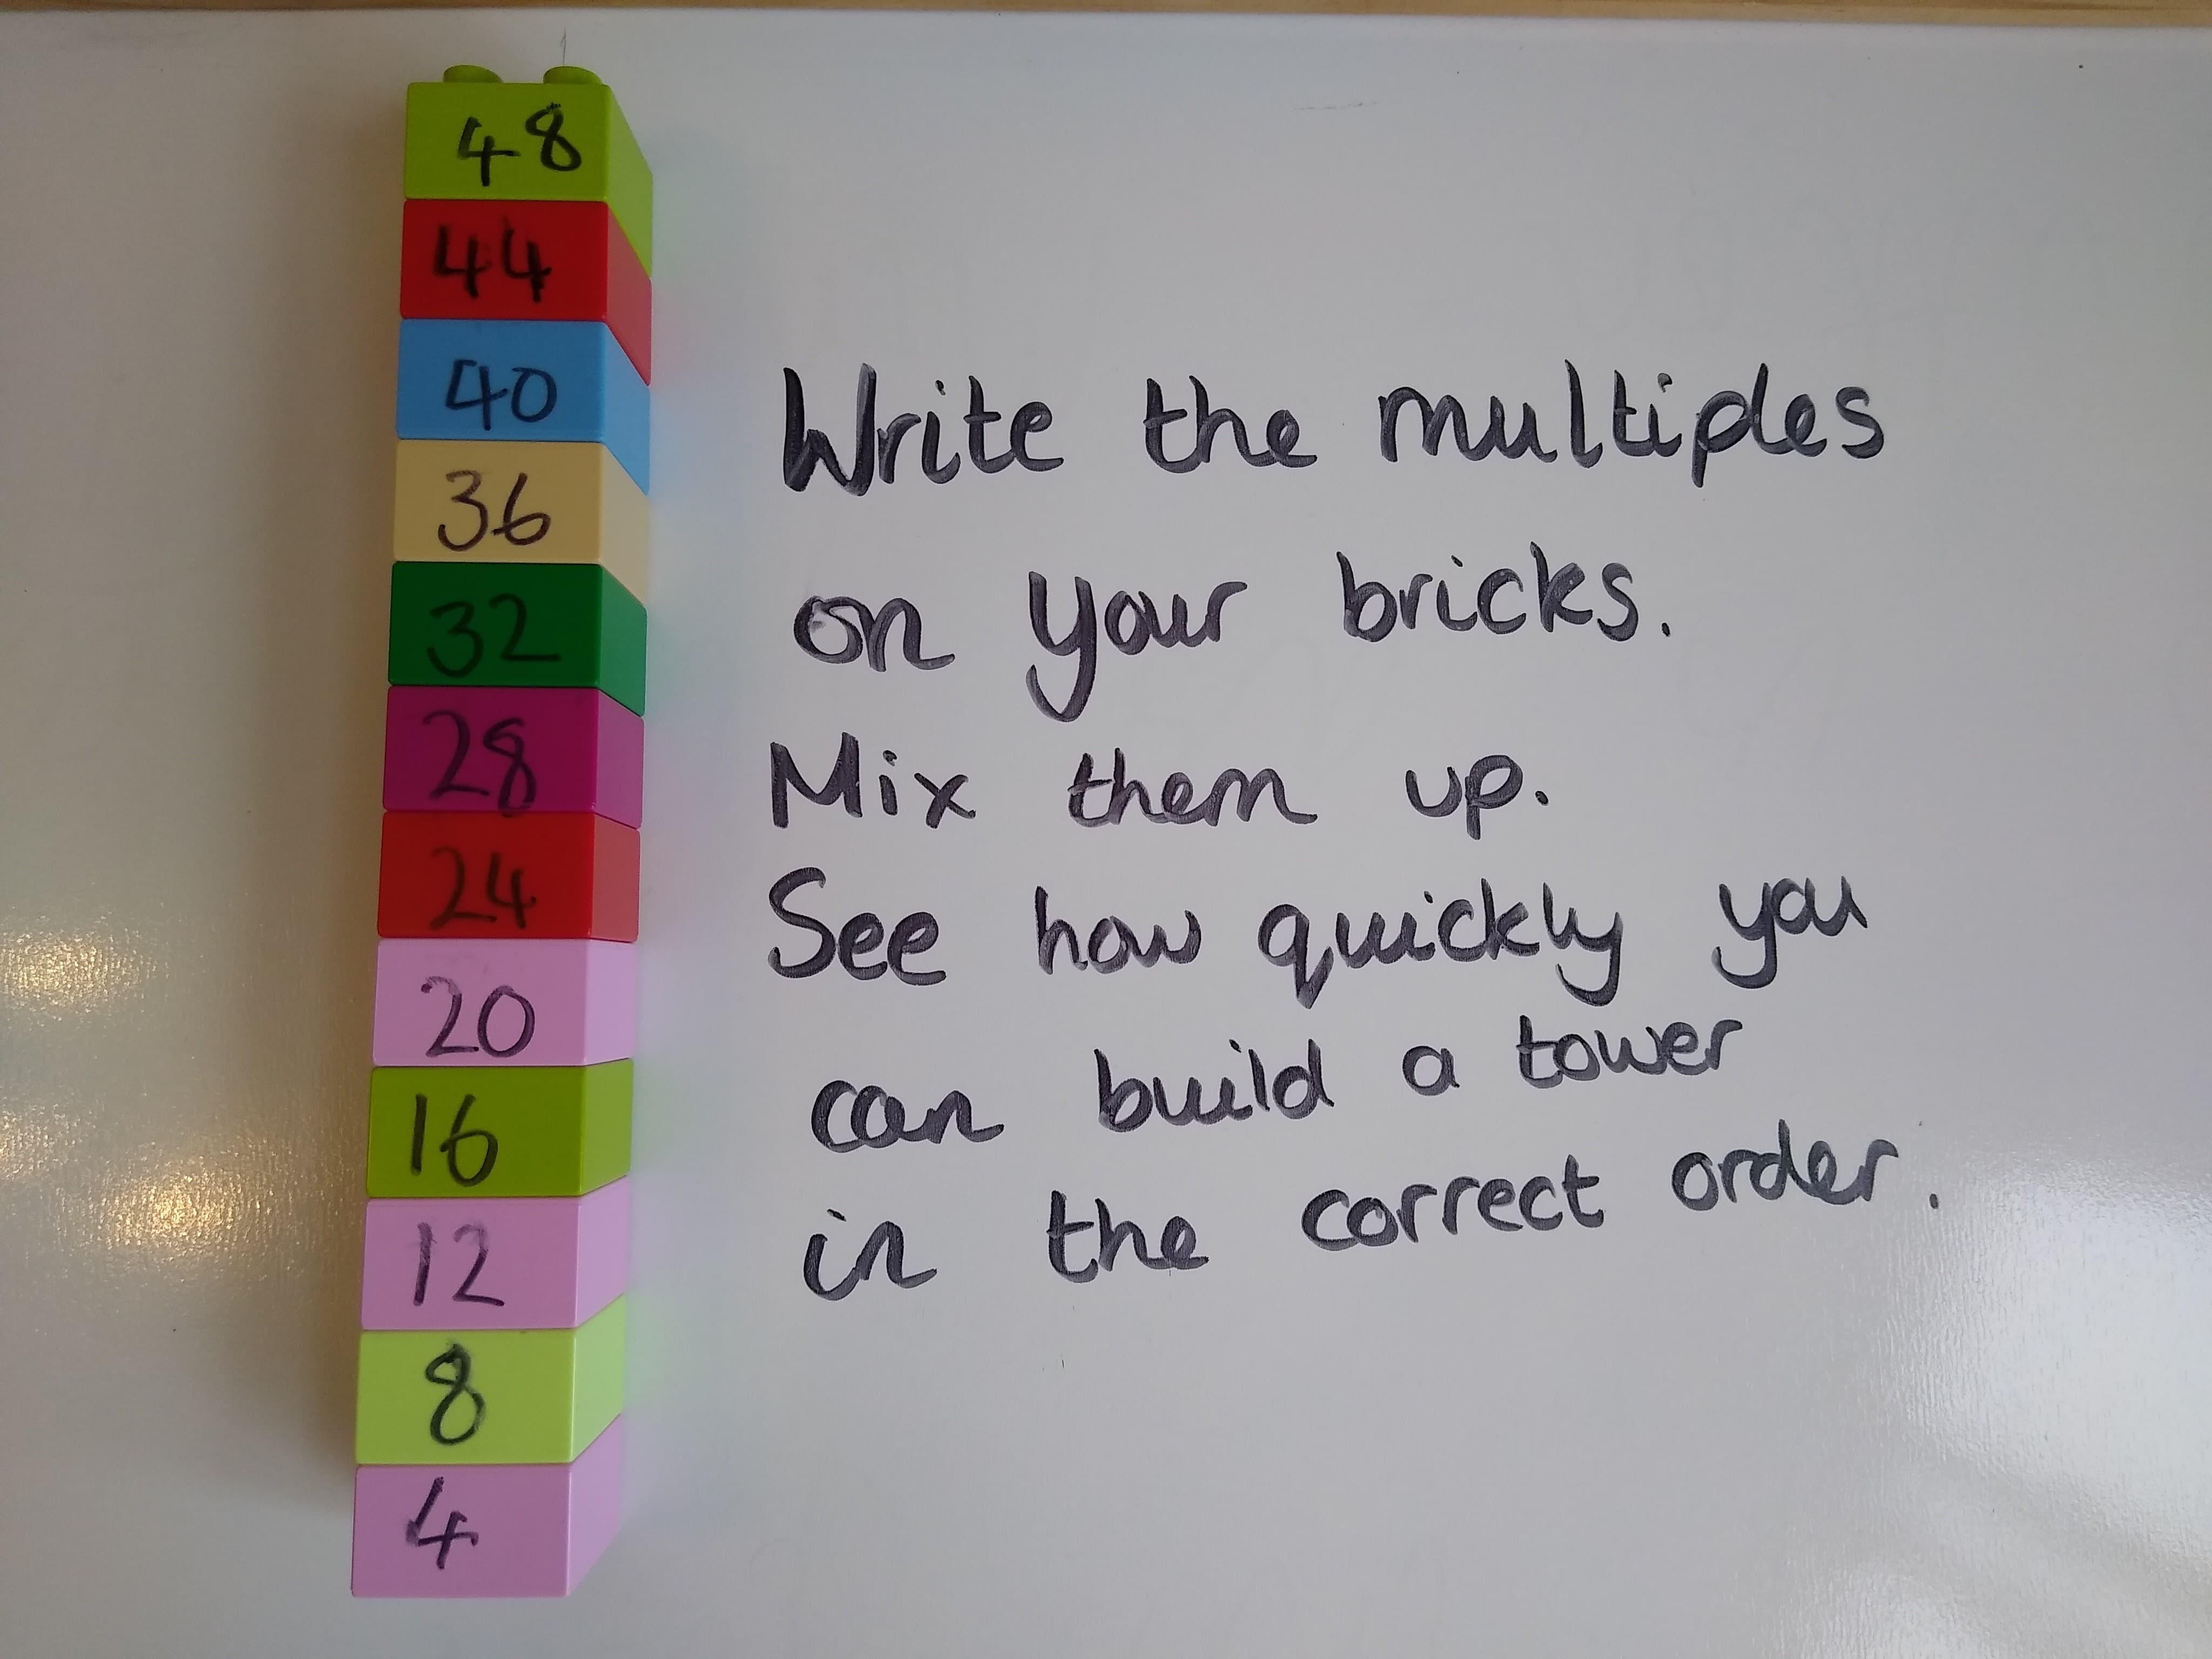 48
44
40
36
32
28
24
20
16
12
8
4
Write the multiples
on your bricks.
Mix them up.
See how quickly you
can build a tower
in the correct order.